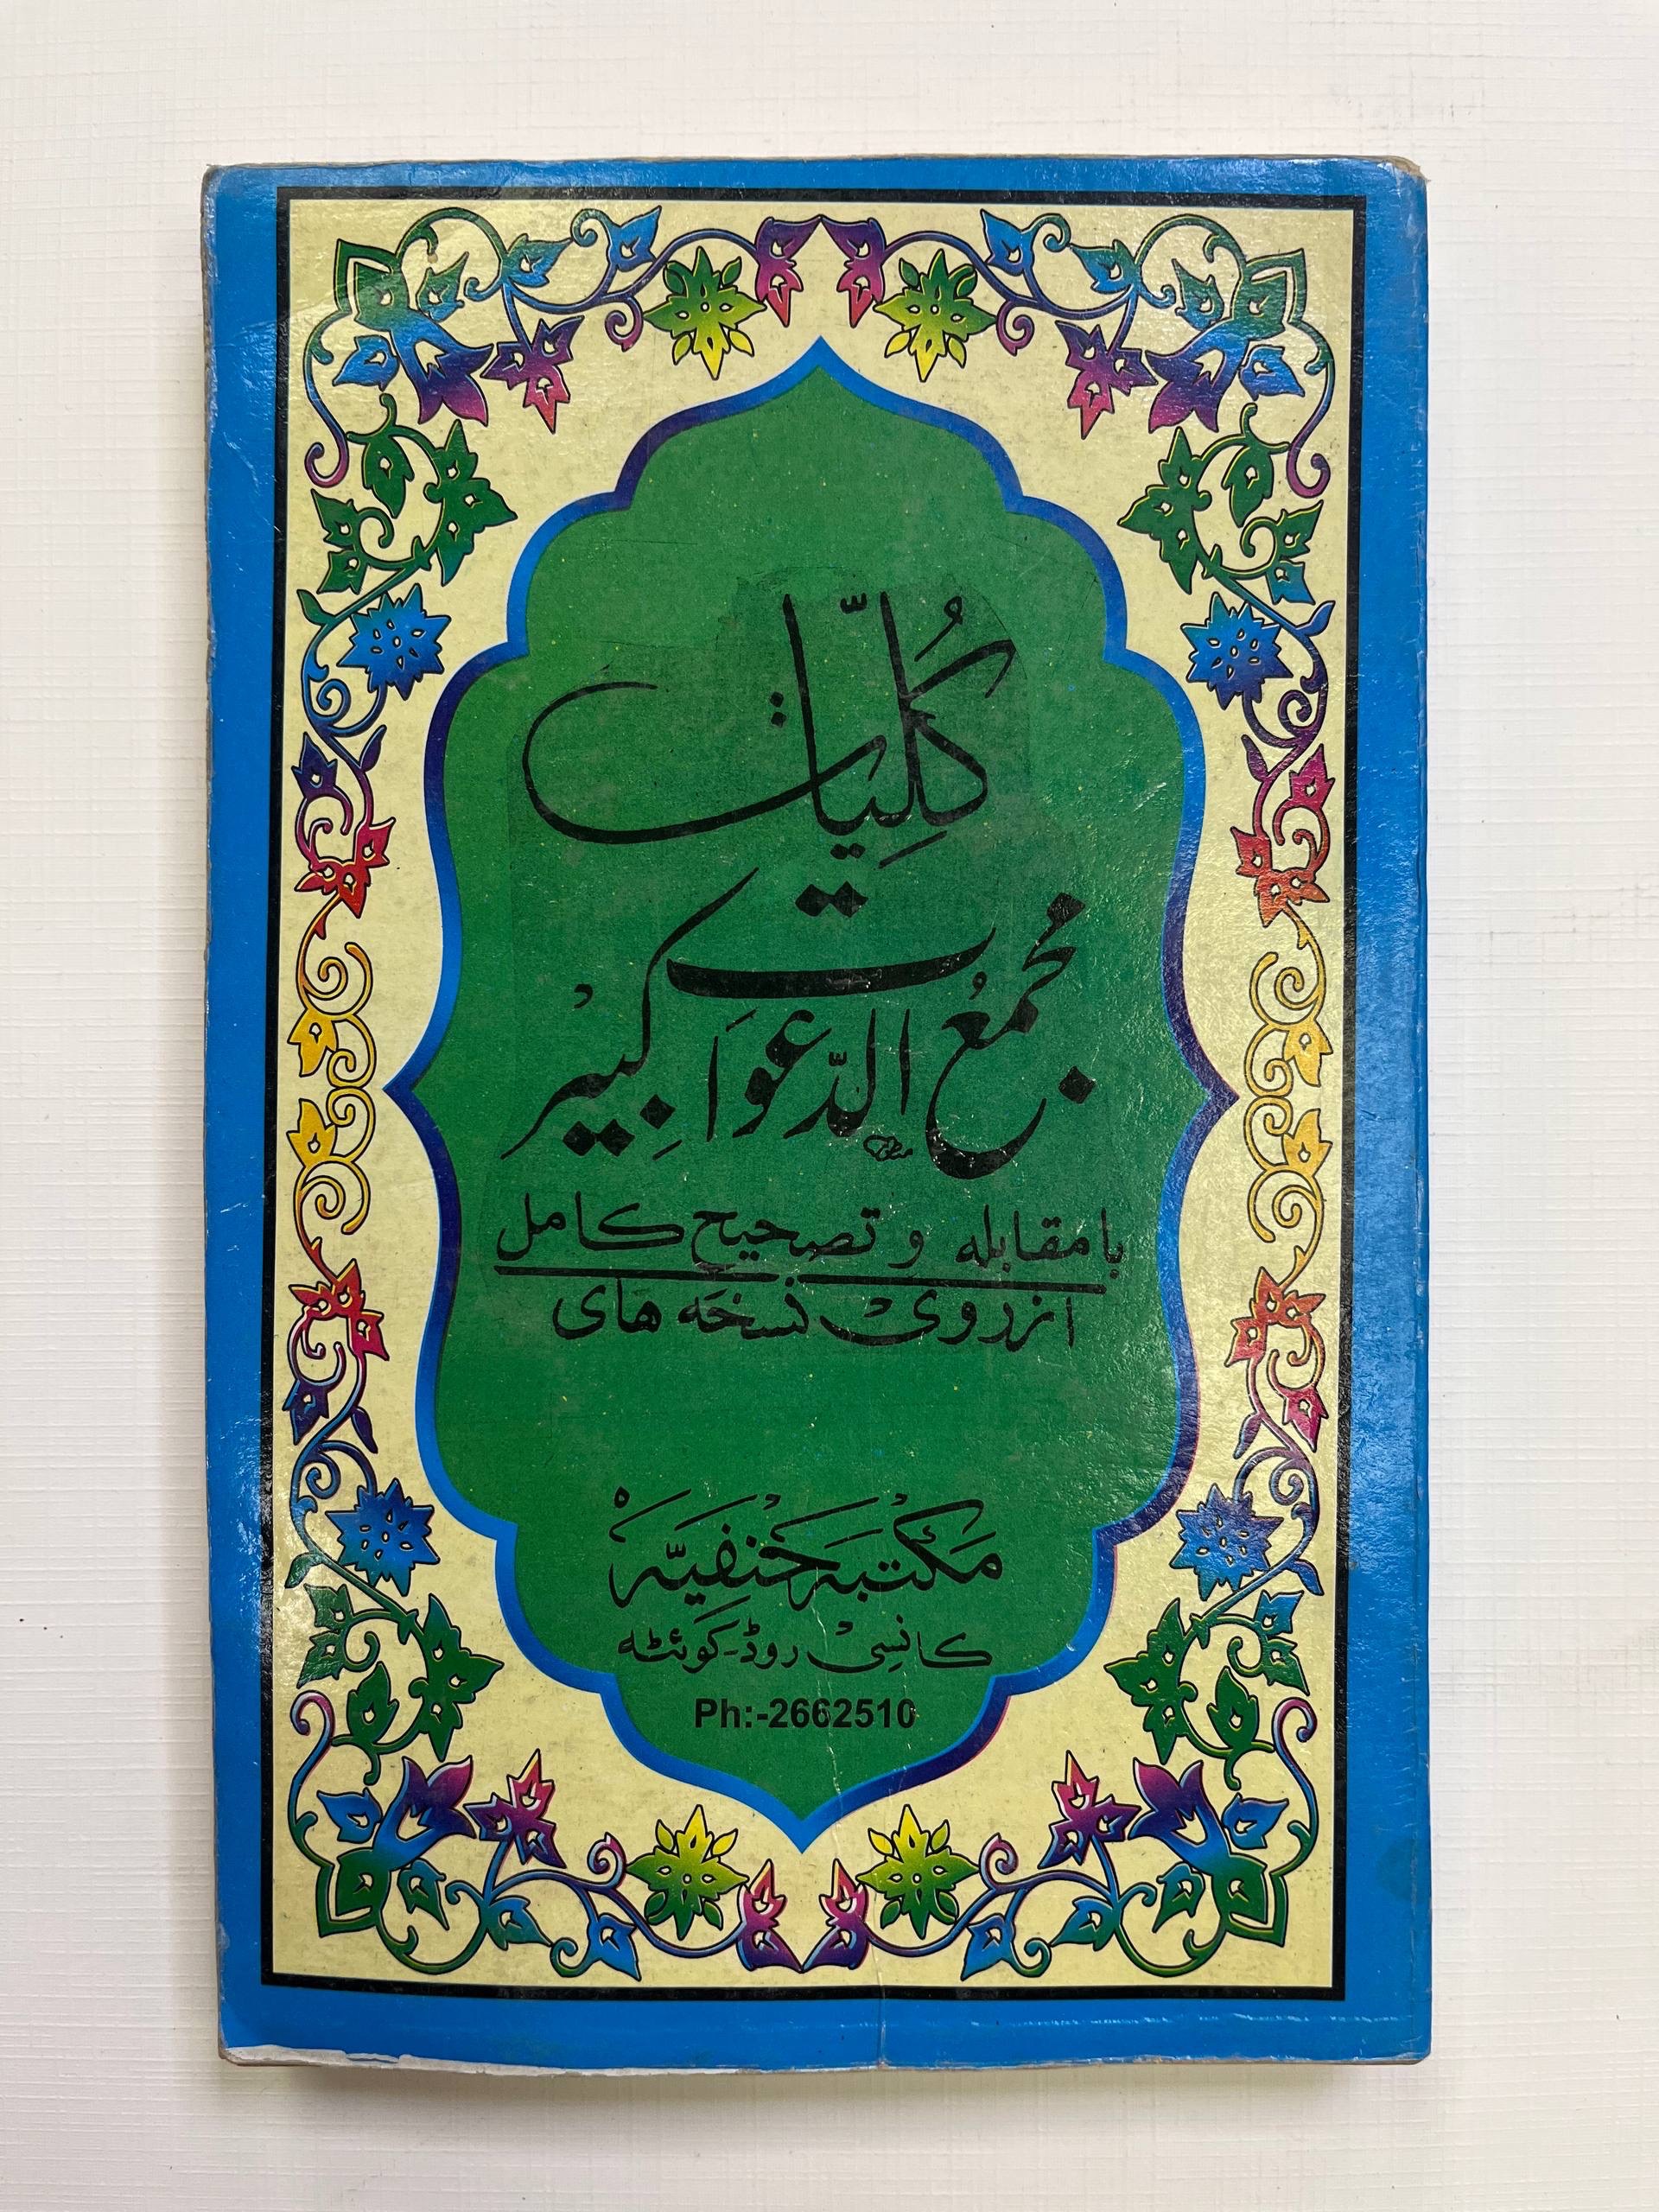 كُلِّيات
مجمعُ الدَّعَوَات كبِير
با مقابله و تصحیح کامل
از روی نسخه های
مَکتبَه حَنفِیَّه
کانسِی روڈ-کوئٹه
Ph:-2662510